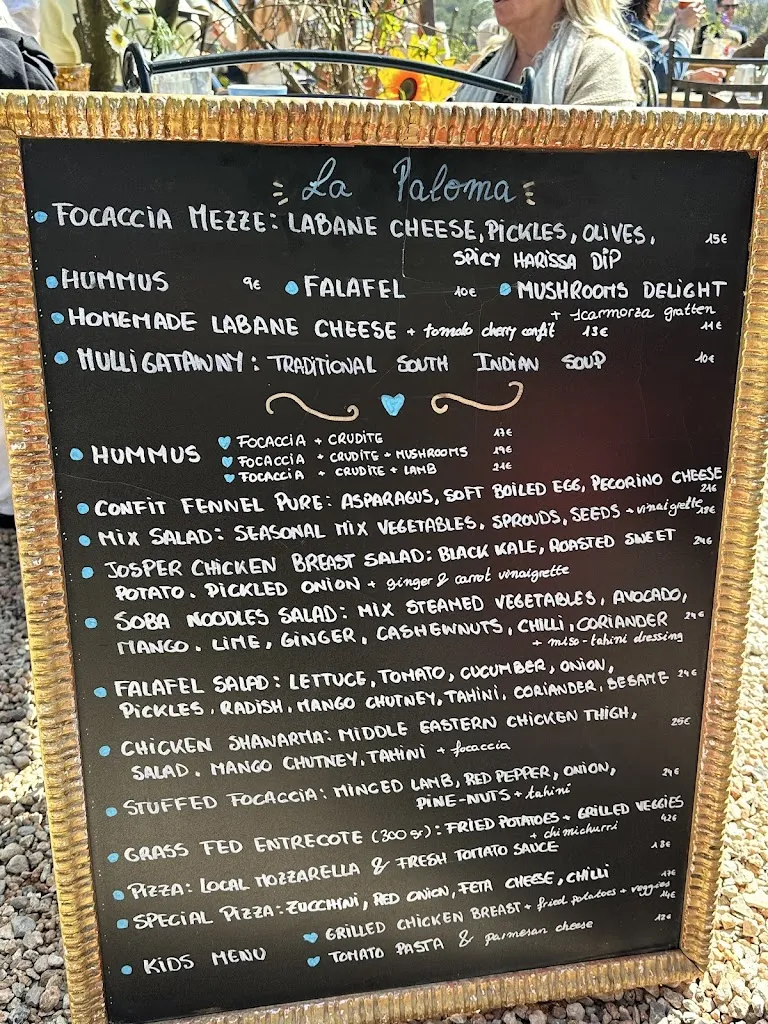 La Paloma
FOCACCIA MEZZE: LABANE CHEESE, PICKLES, OLIVES, 15€
SPICY HARISSA DIP
HUMMUS 9€ FALAFEL 10€ MUSHROOMS DELIGHT
+ scarmorza gratten
HOMEMADE LABANE CHEESE + tomato cherry confit 13€ 11€
MULLIGATAWNY: TRADITIONAL SOUTH INDIAN SOUP 10€
HUMMUS
FOCACCIA + CRUDITE 17€
FOCACCIA + CRUDITE + MUSHROOMS 19€
FOCACCIA + CRUDITE + LAMB 21€
CONFIT FENNEL PURE: ASPARAGUS, SOFT BOILED EGG, PECORINO CHEESE
MIX SALAD: SEASONAL MIX VEGETABLES, SPROUDS, SEEDS + vinaigrette
JOSPER CHICKEN BREAST SALAD: BLACK KALE, ROASTED SWEET 24€
POTATO. PICKLED ONION + ginger & carrot vinaigrette
SOBA NOODLES SALAD: MIX STEAMED VEGETABLES, AVOCADO,
MANGO. LIME, GINGER, CASHEWNUTS, CHILLI, CORIANDER 24€
+ miso-tahini dressing
FALAFEL SALAD: LETTUCE, TOMATO, CUCUMBER, ONION, 24€
PICKLES, RADISH, MANGO CHUTNEY, TAHINI, CORIANDER, SESAME
CHICKEN SHAWARMA: MIDDLE EASTERN CHICKEN THIGH, 25€
SALAD. MANGO CHUTNEY, TAHINI + focaccia
STUFFED FOCACCIA: MINCED LAMB, RED PEPPER, ONION, 24€
PINE-NUTS + tahini
GRASS FED ENTRECOTE (300 gr): FRIED POTATOES + GRILLED VEGGIES
+ chimichurri 42€
PIZZA: LOCAL MOZZARELLA & FRESH TOMATO SAUCE 18€
SPECIAL PIZZA: ZUCCHINI, RED ONION, FETA CHEESE, CHILLI
KIDS MENU
GRILLED CHICKEN BREAST + fried potatoes + veggies 14€
TOMATO PASTA & parmesan cheese 12€